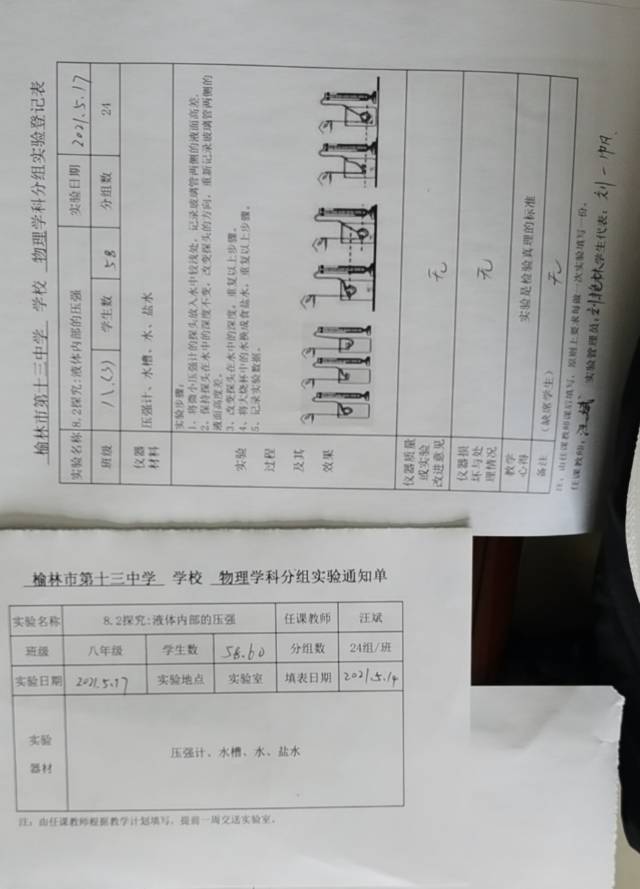 榆林市第十三中学 学校 物理学科分组实验登记表
实验名称 8.2探究:液体内部的压强 实验日期 2021.5.17
班级 八.(3) 学生数 58 分组数 24
仪器材料 压强计、水槽、水、盐水
实验过程及其效果
实验步骤:
1、将微小压强计的探头放入水中较浅处，记录玻璃管两侧的液面高差。
2、保持探头在水中的深度不变，改变探头的方向，重新记录玻璃管两侧的
液面高度差。
3、改变探头在水中的深度，重复以上步骤。
4、将大烧杯中的水换成食盐水，重复以上步骤。
5、记录实验数据。
仪器质量或实验改进意见 无
仪器损坏与处理情况 无
教学心得 实验是检验真理的标准
备注 (缺席学生) 无
注：由任课教师课后填写，原则上要求每做一次实验填写一份。
任课教师: 汪斌 实验管理员: 学生代表: 刘一帆
榆林市第十三中学 学校 物理学科分组实验通知单
实验名称 8.2探究:液体内部的压强 任课教师 汪斌
班级 八年级 学生数 58.60 分组数 24组/班
实验日期 2021.5.17 实验地点 实验室 填表日期 2021.5.14
实验器材 压强计、水槽、水、盐水
注：由任课教师根据教学计划填写，提前一周交送实验室。